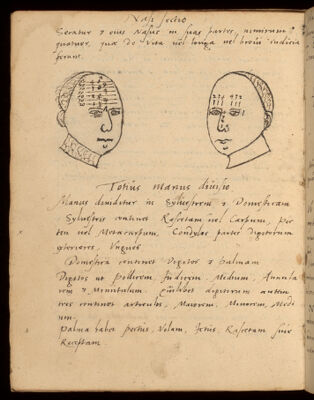 Nasi sectio
Secatur & eius Nasus in suas partes, nimirum
quatuor, quæ de Vita vel longa vel brevi iudicia
ferunt.
Totius manus divisio
Manus dividitur in Sylvestrem & Domesticam
Sylvestris continet Rascetam vel Carpum, Pec
ten vel Metacarpum, Condylos partes digitorum
, Ungues
Domestica continet Digitos & Palmam
Digitos ut Pollicem, Indicem, Medium, Annula
rem & Minimum. digitorum autem
tres continet articulos, Maiorem, Minorem, Medi
um.
Palma habet pectus, Volam, Rascetam sive
Restrictam.